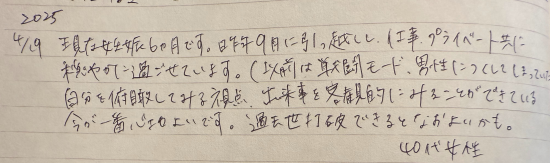 2025
4/19 現在妊娠6ヵ月です。昨年9月に引っ越しし、仕事、プライベート共に
穏やかに過ごせています。(以前は戦闘モード、男性につくしてしまってい
自分を俯瞰してみる視点、出来事を客観的にみることができている
今が一番心地よいです。過去世打破できるとなおよいかも。
40代女性